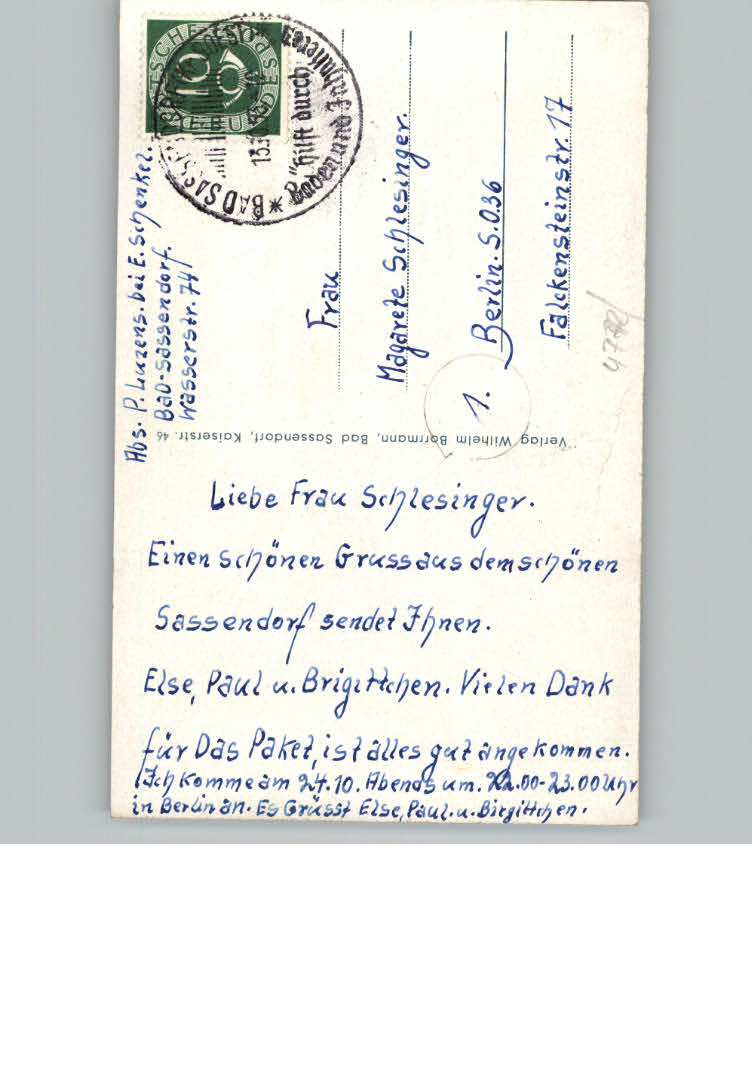 Abs. P. Luzens. bei E. Schenkel.
Bad-Sassendorf.
Wasserstr. 74
10
BAD SASSENDORF
hilft durch
Baden und Inhalieren
Frau
Magarete Schlesinger.
1. Berlin. S.O.36
Falckensteinstr. 17
Verlag Wilhelm Borrmann, Bad Sassendorf, Kaiserstr. 46
Liebe Frau Schlesinger.
Einen schönen Gruss aus dem schönen
Sassendorf sendet Ihnen.
Else, Paul u. Brigittchen. Vielen Dank
für Das Paket, ist alles gut angekommen.
Ich komme am 24.10. Abends um. 22.00-23.00 Uhr
in Berlin an. Es Grüsst Else, Paul. u. Birgittchen.